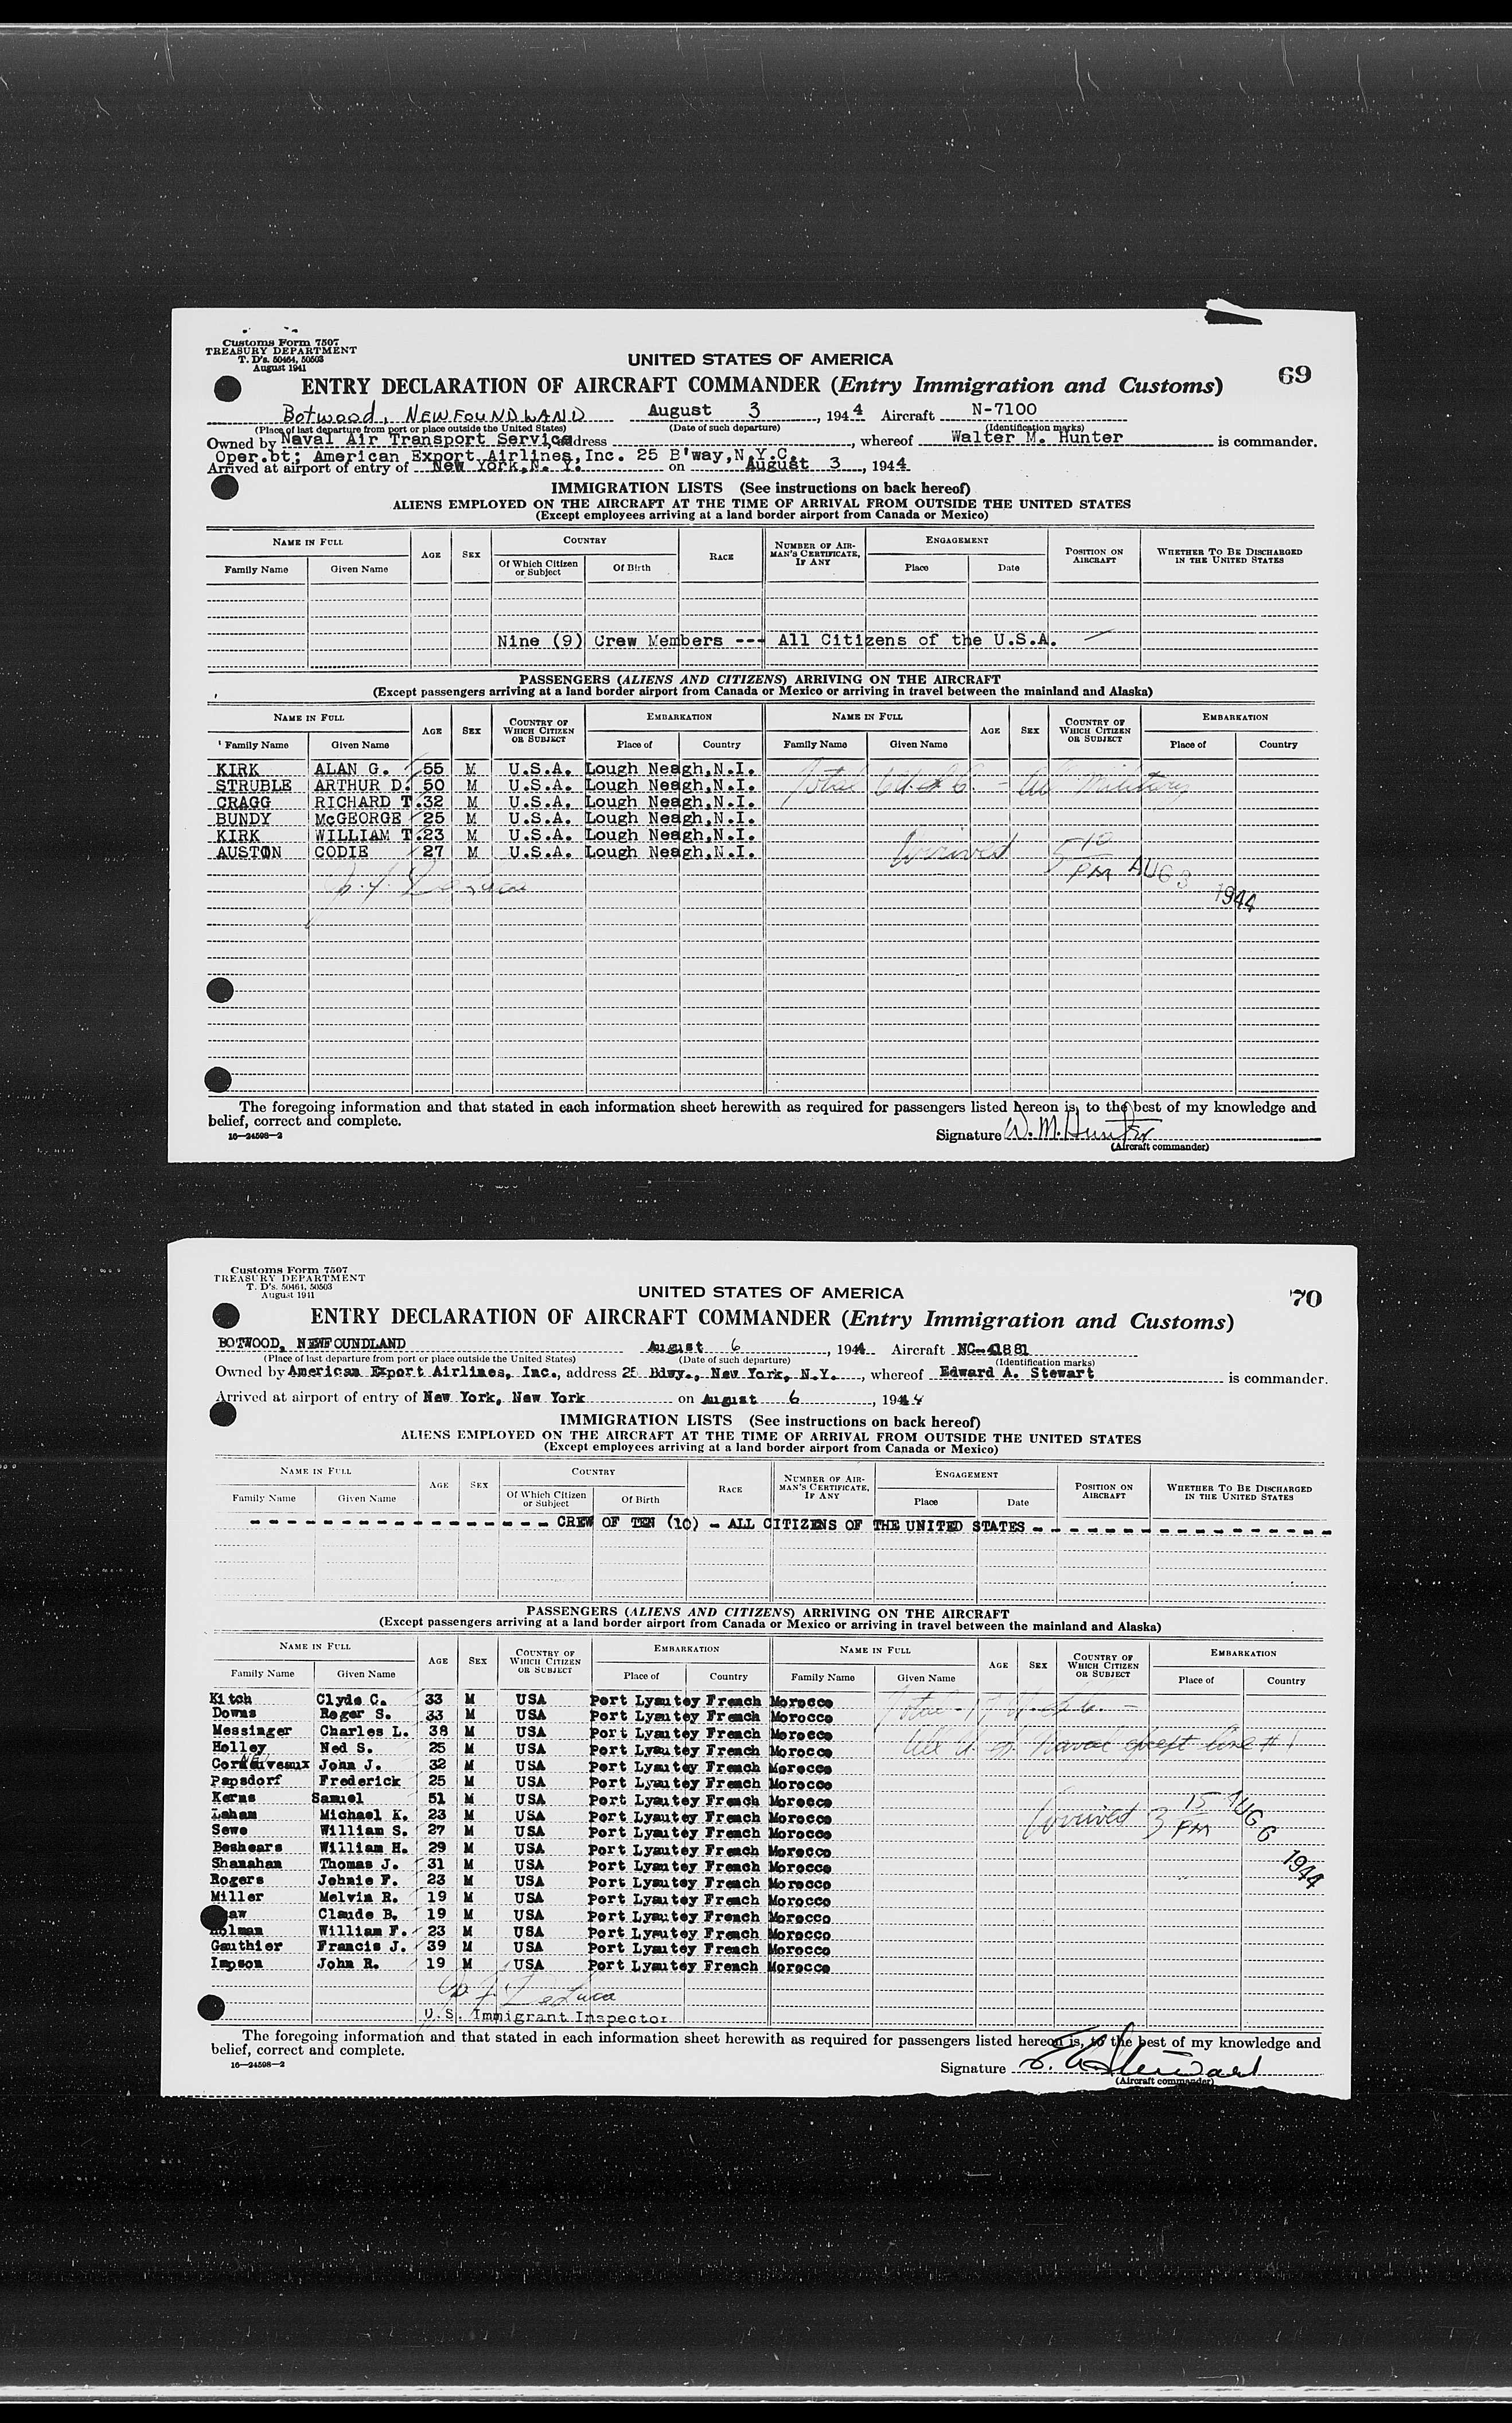 Customs Form 7507
TREASURY DEPARTMENT
T. D's. 50464, 50503
August 1941
UNITED STATES OF AMERICA
69
ENTRY DECLARATION OF AIRCRAFT COMMANDER (Entry Immigration and Customs)
Botwood, NEWFOUNDLAND August 3, 1944 Aircraft N-7100
(Place of last departure from port or place outside the United States) (Date of such departure) (Identification marks)
Owned by Naval Air Transport Service, address , whereof Walter M. Hunter is commander.
Oper.bt; American Export Airlines, Inc. 25 B'way, N.Y.C.
Arrived at airport of entry of New York, N. Y. on August 3, 1944
IMMIGRATION LISTS (See instructions on back hereof)
ALIENS EMPLOYED ON THE AIRCRAFT AT THE TIME OF ARRIVAL FROM OUTSIDE THE UNITED STATES
(Except employees arriving at a land border airport from Canada or Mexico)
NAME IN FULL AGE SEX COUNTRY RACE NUMBER OF AIRMAN'S CERTIFICATE, IF ANY ENGAGEMENT POSITION ON AIRCRAFT WHETHER TO BE DISCHARGED IN THE UNITED STATES
Family Name Given Name Of Which Citizen or Subject Of Birth Place Date
Nine (9) Crew Members --- All Citizens of the U.S.A.
PASSENGERS (ALIENS AND CITIZENS) ARRIVING ON THE AIRCRAFT
(Except passengers arriving at a land border airport from Canada or Mexico or arriving in travel between the mainland and Alaska)
NAME IN FULL AGE SEX COUNTRY OF WHICH CITIZEN OR SUBJECT EMBARKATION NAME IN FULL AGE SEX COUNTRY OF WHICH CITIZEN OR SUBJECT EMBARKATION
Family Name Given Name Place of Country Family Name Given Name Place of Country
KIRK ALAN G. 55 M U.S.A. Lough Neagh, N.I.
STRUBLE ARTHUR D. 50 M U.S.A. Lough Neagh, N.I. Total 6 - All military
CRAGG RICHARD T. 32 M U.S.A. Lough Neagh, N.I.
BUNDY McGEORGE 25 M U.S.A. Lough Neagh, N.I.
KIRK WILLIAM T. 23 M U.S.A. Lough Neagh, N.I.
AUSTON CODIE 27 M U.S.A. Lough Neagh, N.I. Arrived 5 10 PM AUG 3 1944
DeLuca
The foregoing information and that stated in each information sheet herewith as required for passengers listed hereon is, to the best of my knowledge and
belief, correct and complete.
16—24598—2
Signature W. M. Hunter
(Aircraft commander)
Customs Form 7507
TREASURY DEPARTMENT
T. D's. 50464, 50503
August 1941
UNITED STATES OF AMERICA
70
ENTRY DECLARATION OF AIRCRAFT COMMANDER (Entry Immigration and Customs)
BOTWOOD, NEWFOUNDLAND August 6, 1944 Aircraft NC-41881
(Place of last departure from port or place outside the United States) (Date of such departure) (Identification marks)
Owned by American Export Airlines, Inc., address 25 Bdwy., New York, N.Y., whereof Edward A. Stewart is commander.
Arrived at airport of entry of New York, New York on August 6, 1944
IMMIGRATION LISTS (See instructions on back hereof)
ALIENS EMPLOYED ON THE AIRCRAFT AT THE TIME OF ARRIVAL FROM OUTSIDE THE UNITED STATES
(Except employees arriving at a land border airport from Canada or Mexico)
NAME IN FULL AGE SEX COUNTRY RACE NUMBER OF AIRMAN'S CERTIFICATE, IF ANY ENGAGEMENT POSITION ON AIRCRAFT WHETHER TO BE DISCHARGED IN THE UNITED STATES
Family Name Given Name Of Which Citizen or Subject Of Birth Place Date
CREW OF TEN (10) - ALL CITIZENS OF THE UNITED STATES
PASSENGERS (ALIENS AND CITIZENS) ARRIVING ON THE AIRCRAFT
(Except passengers arriving at a land border airport from Canada or Mexico or arriving in travel between the mainland and Alaska)
NAME IN FULL AGE SEX COUNTRY OF WHICH CITIZEN OR SUBJECT EMBARKATION NAME IN FULL AGE SEX COUNTRY OF WHICH CITIZEN OR SUBJECT EMBARKATION
Family Name Given Name Place of Country Family Name Given Name Place of Country
Kitch Clyde C. 33 M USA Port Lyautey French Morocco
Downs Roger S. 33 M USA Port Lyautey French Morocco Total - 17
Messinger Charles L. 38 M USA Port Lyautey French Morocco
Holley Ned S. 25 M USA Port Lyautey French Morocco All Naval except line # 1
John J. 32 M USA Port Lyautey French Morocco
Papsdorf Frederick 25 M USA Port Lyautey French Morocco
Kerns Samuel 51 M USA Port Lyautey French Morocco
Laham Michael K. 23 M USA Port Lyautey French Morocco Arrived 3 15 PM AUG 6 1944
Sewe William S. 27 M USA Port Lyautey French Morocco
Beshears William H. 29 M USA Port Lyautey French Morocco
Shanahan Thomas J. 31 M USA Port Lyautey French Morocco
Rogers Johnie F. 23 M USA Port Lyautey French Morocco
Miller Melvin R. 19 M USA Port Lyautey French Morocco
aw Claude B. 19 M USA Port Lyautey French Morocco
olman William F. 23 M USA Port Lyautey French Morocco
Gauthier Francis J. 39 M USA Port Lyautey French Morocco
Impson John R. 19 M USA Port Lyautey French Morocco
DeLuca
U.S. Immigrant Inspector
The foregoing information and that stated in each information sheet herewith as required for passengers listed hereon is, to the best of my knowledge and
belief, correct and complete.
16—24598—2
Signature E. A. Stewart
(Aircraft commander)